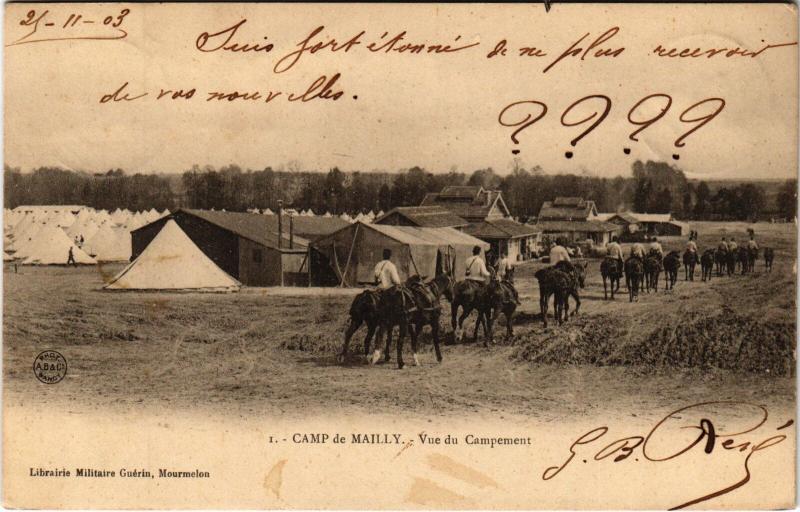 25-11-03
Suis fort étonné de ne plus recevoir
de vos nouvelles.
????
PHOT.
A.B & Cie
NANCY
1. - CAMP de MAILLY. - Vue du Campement
Librairie Militaire Guérin, Mourmelon
G.B.